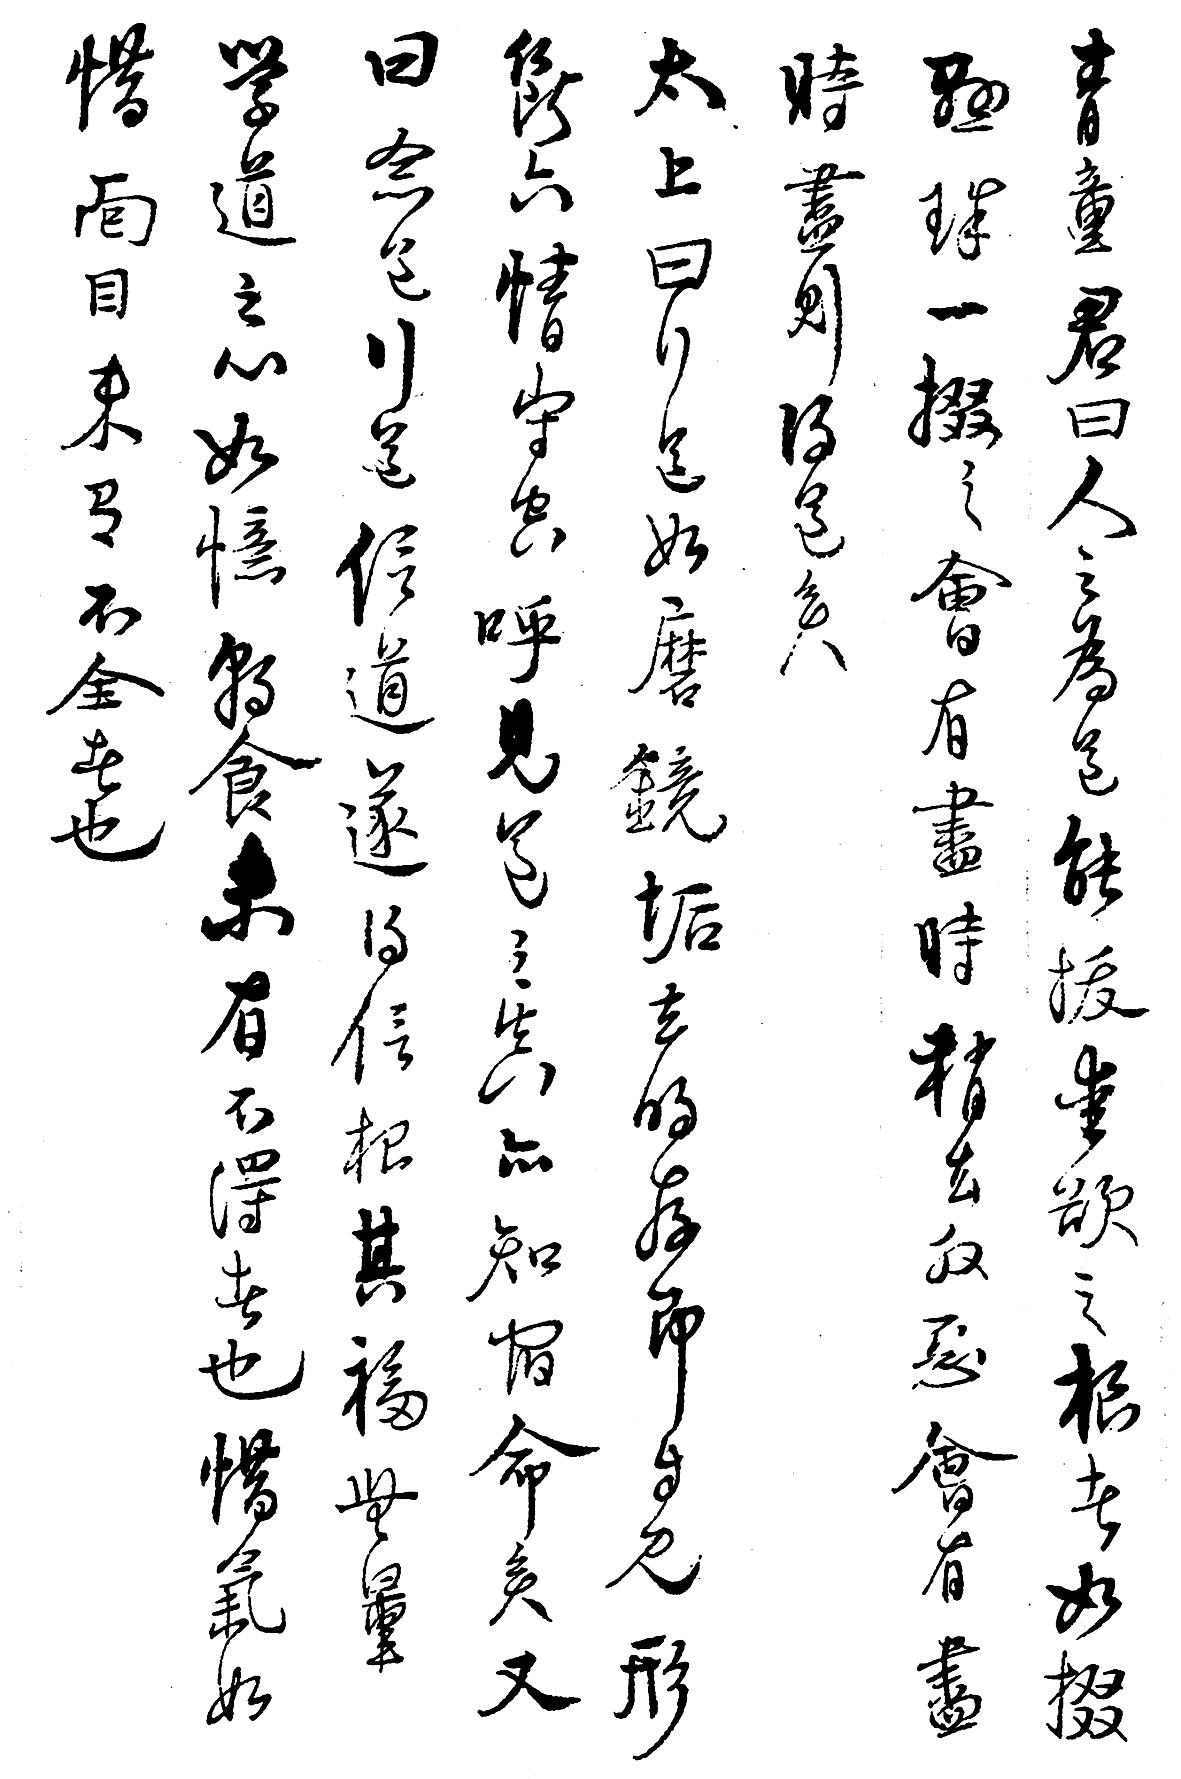 青童君曰人之為道能拔愛欲之根者如掇
懸珠一掇之會有盡時稍去外惡會有盡
時盡則得道矣
太上曰行道如磨鏡垢去明存即自見形
斷六情守空呼見道之真亦知宿命矣又
曰念道行道信道遂得信根其福無量
學道之心如憶朝食未有不得者也惜氣如
惜面目未有不全者也